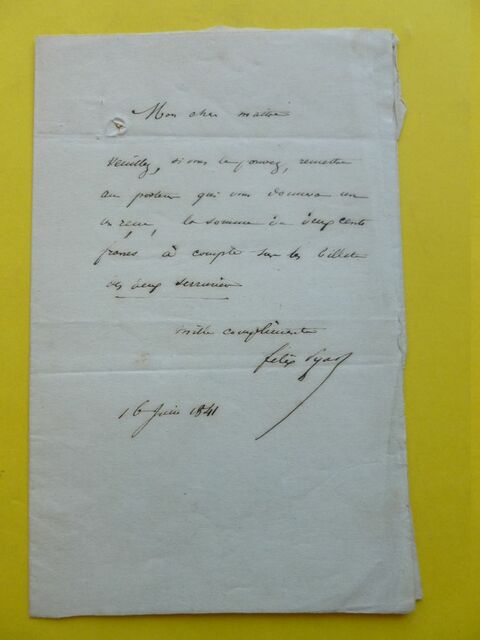 Mon cher maître
Veuillez, si vous le pouvez, remettre
au porteur qui vous donnera un
un reçu, la somme de deux cents
francs à compte sur les billets
des deux serruriers
mille compliments
félix Pyat
16 Juin 1841